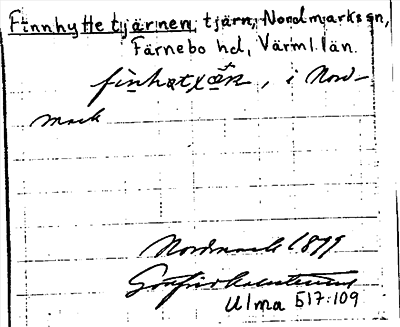 Finnhyttetjärnen, tjärn, Nordmarks sn,
Färnebo hd, Värml. län.
i Nord-
mark
Nordmark 1899
Ulma 517:109